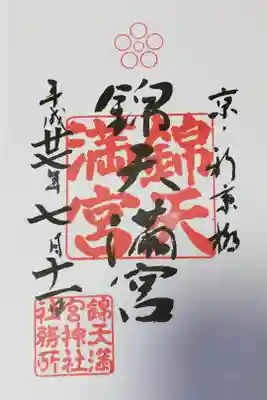 京・新京極
錦天満宮
錦天
満宮
平成廿八年七月十一日
錦天満
宮神社
社務所